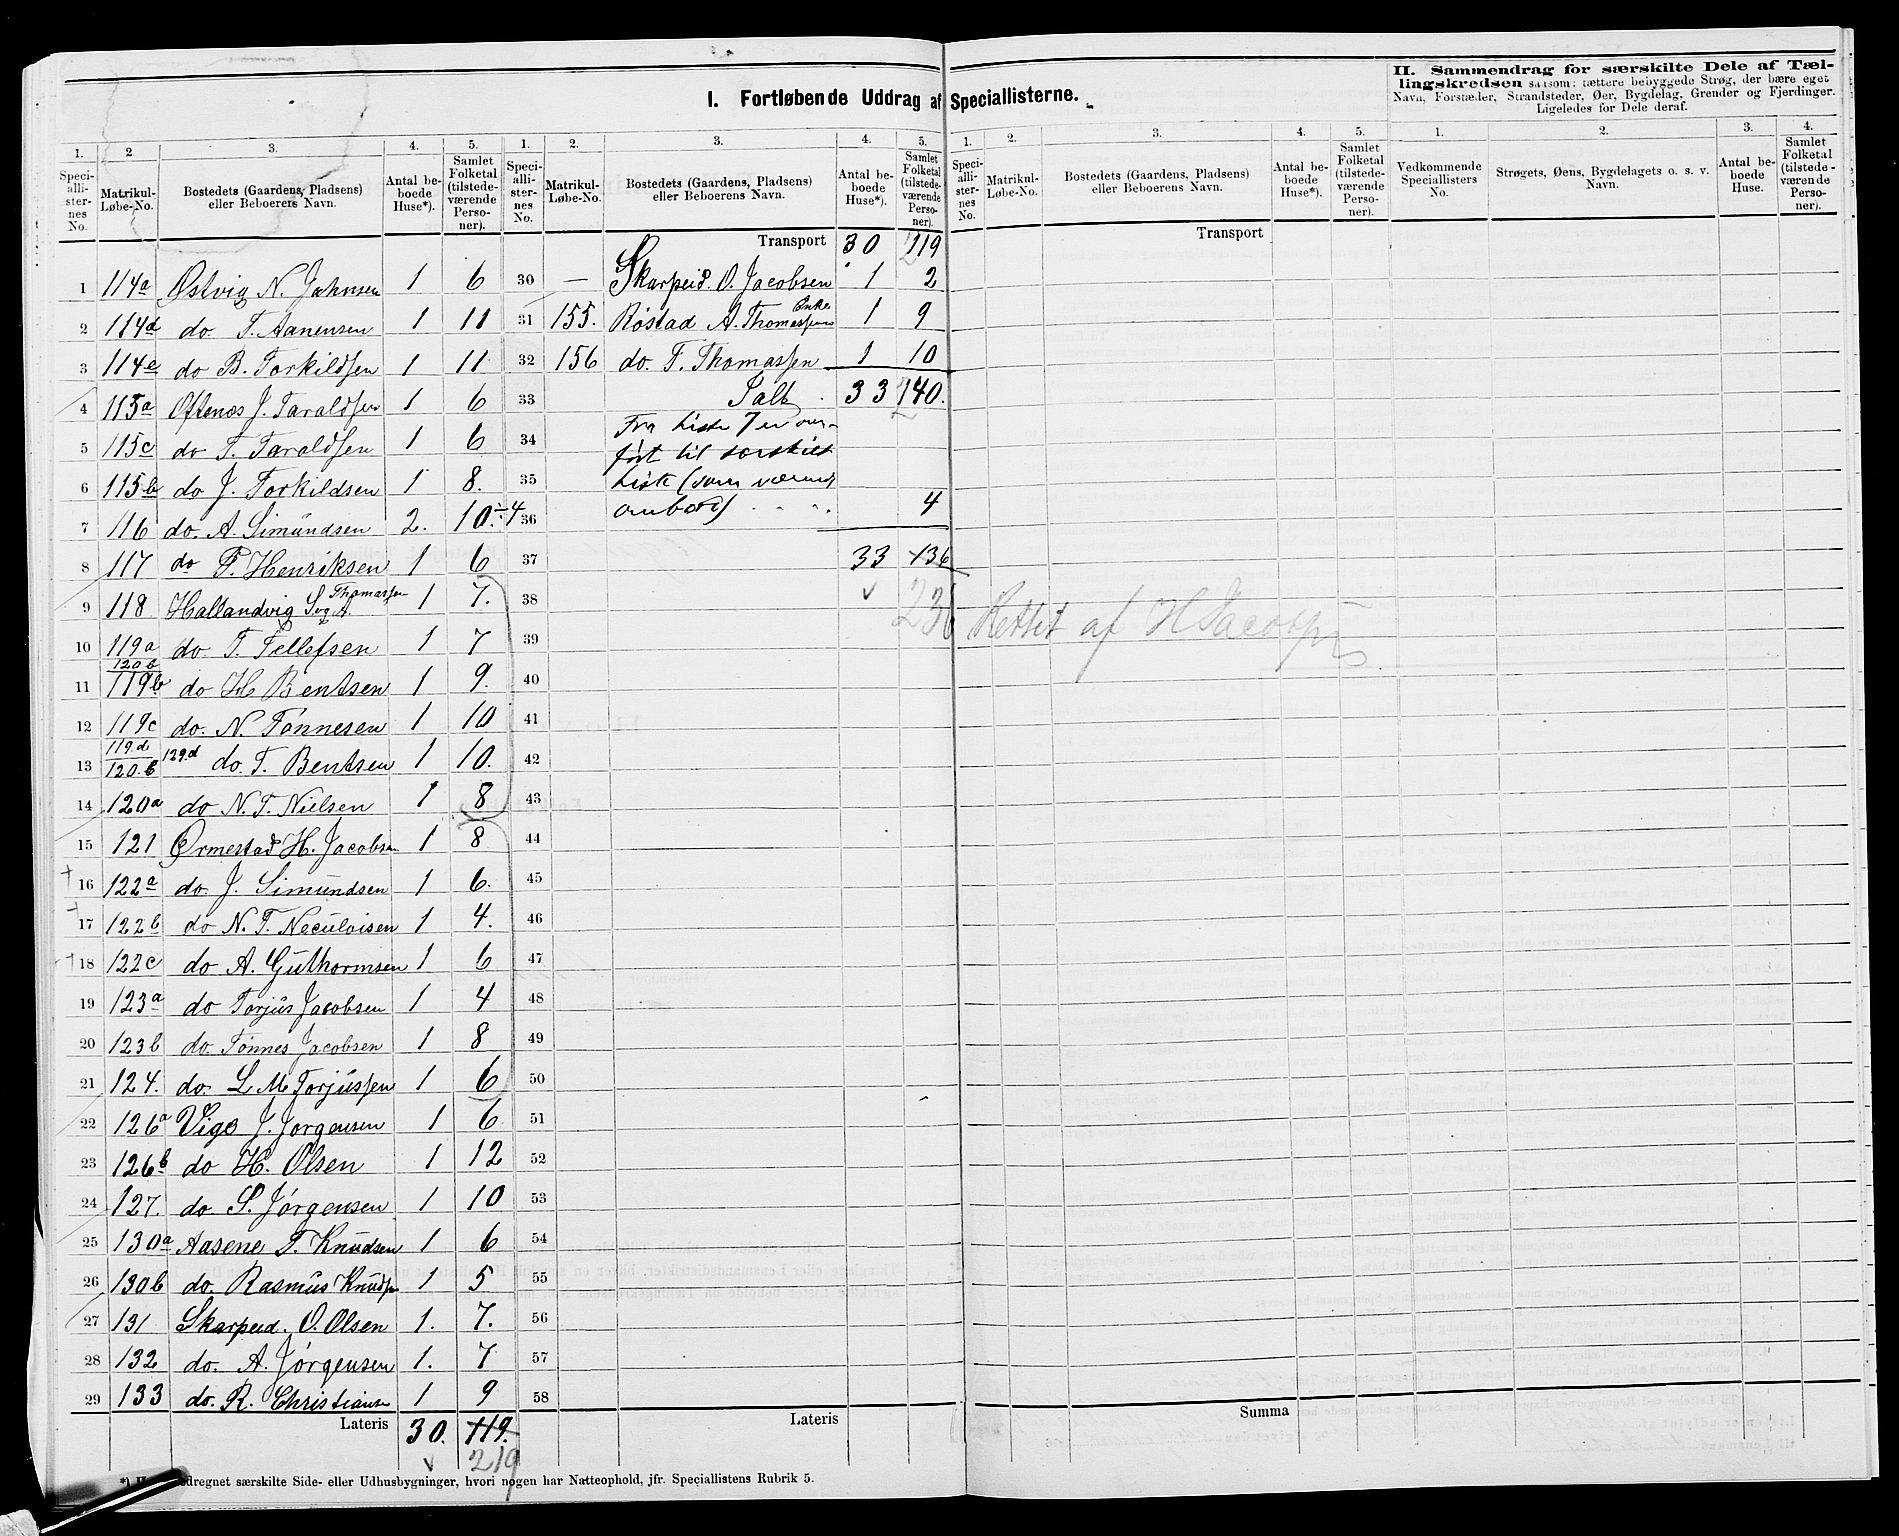 I. Fortløbende Uddrag af Speciallisterne.
II. Sammendrag for særskilte Dele af Tæl-
lingskredsen saasom: tættere bebyggede Strøg, der bære eget
Navn, Forstæder, Strandsteder, Øer, Bygdelag, Grender og Fjerdinger.
Ligeledes for Dele deraf.
1. 2 3. 4. 5.
Speci-alli-ster-nes No. Matrikul-Løbe-No. Bostedets (Gaardens, Pladsens) eller Beboerens Navn. Antal be-boede Huse*). Samlet Folketal (tilstede-værende Perso-ner).
1 114a Østvig N. Jahnsen 1 6
2 114d do T. Aanensen 1 11
3 114e do B. Torkildsen 1 11
4 115a Oftenæs J. Taraldsen 1 6
5 115c do T. Taraldsen 1 6
6 115b do J. Torkildsen 1 8.
7 116 do. A. Simundsen 2. 10. ÷4
8 117 do T. Henriksen 1 6
9 118 Hallandvig Svg A. Thomassen 1 7.
10 119a do T. Tellefsen 1 7
11 120b 119b do H Bentsen 1 9.
12 119c do. N. Tønnesen 1 10
13 119.d 120.b 129.d do. T. Bentsen 1 10.
14 120a do N. T. Nielsen 1 8
15 121 Ormestad H. Jacobsen 1 8
16 122a do. J. Simundsen 1 6.
17 122b do N. T. Neculoisen 1 4.
18 122c do A. Guthormsen 1 6
19 123a do Torjus Jacobsen 1 4
20 123b do. Tønnes Jacobsen 1 8
21 124. do. L M Torjussen 1 6
22 126a Vige J. Jorgensen 1 6
23 126b do H. Olsen 1 12
24 127. do. S. Jørgensen 1 10
25 130a Aasene T. Knudsen 1 6
26 130b do. Rasmus Knudsen 1 5
27 131 Skarpeid. O. Olsen 1. 7.
28 132 do. A. Jørgensen 1. 7
29 133 do. R. Christiansen 1 9
Lateris 30. 119.
219
1. 2. 3. 4. 5.
Speci-alli-ster-nes No. Matrikul-Løbe-No. Bostedets (Gaardens, Pladsens) eller Beboerens Navn. Antal be-boede Huse*). Samlet Folketal (tilstede-værende Perso-ner).
Transport 30 219
30 — Skarpeid. O. Jacobsen 1 2
31 155. Røstad A. Thomassens Enke 1 9
32 156 do. F. Thomassen 1 10
33 Talt 33 240.
34 Fra Liste 7 er over-
ført til særskilt
35 Liste (som værende
36 ombord) 4
37 33 136
38 236 Rettet af H Jacobsen
39
40
41
42
43
44
45
46
47
48
49
50
51
52
53
54
55
56
57
58
Lateris
1. 2. 3. 4. 5.
Speci-alli-ster-nes No. Matrikul-Løbe-No. Bostedets (Gaardens, Pladsens) eller Beboerens Navn. Antal be-boede Huse*). Samlet Folketal (tilstede-værende Perso-ner).
Transport
Summa
1. 2. 3. 4.
Vedkommende Speciallisters No. Strøgets, Øens, Bygdelagets o. s. v. Navn. Antal be-boede Huse. Samlet Folketal (tilstede-værende Perso-ner).
*) særskilte Side- eller Udhusbygninger, hvori nogen har Natteophold, jfr. Speciallistens Rubrik 5.